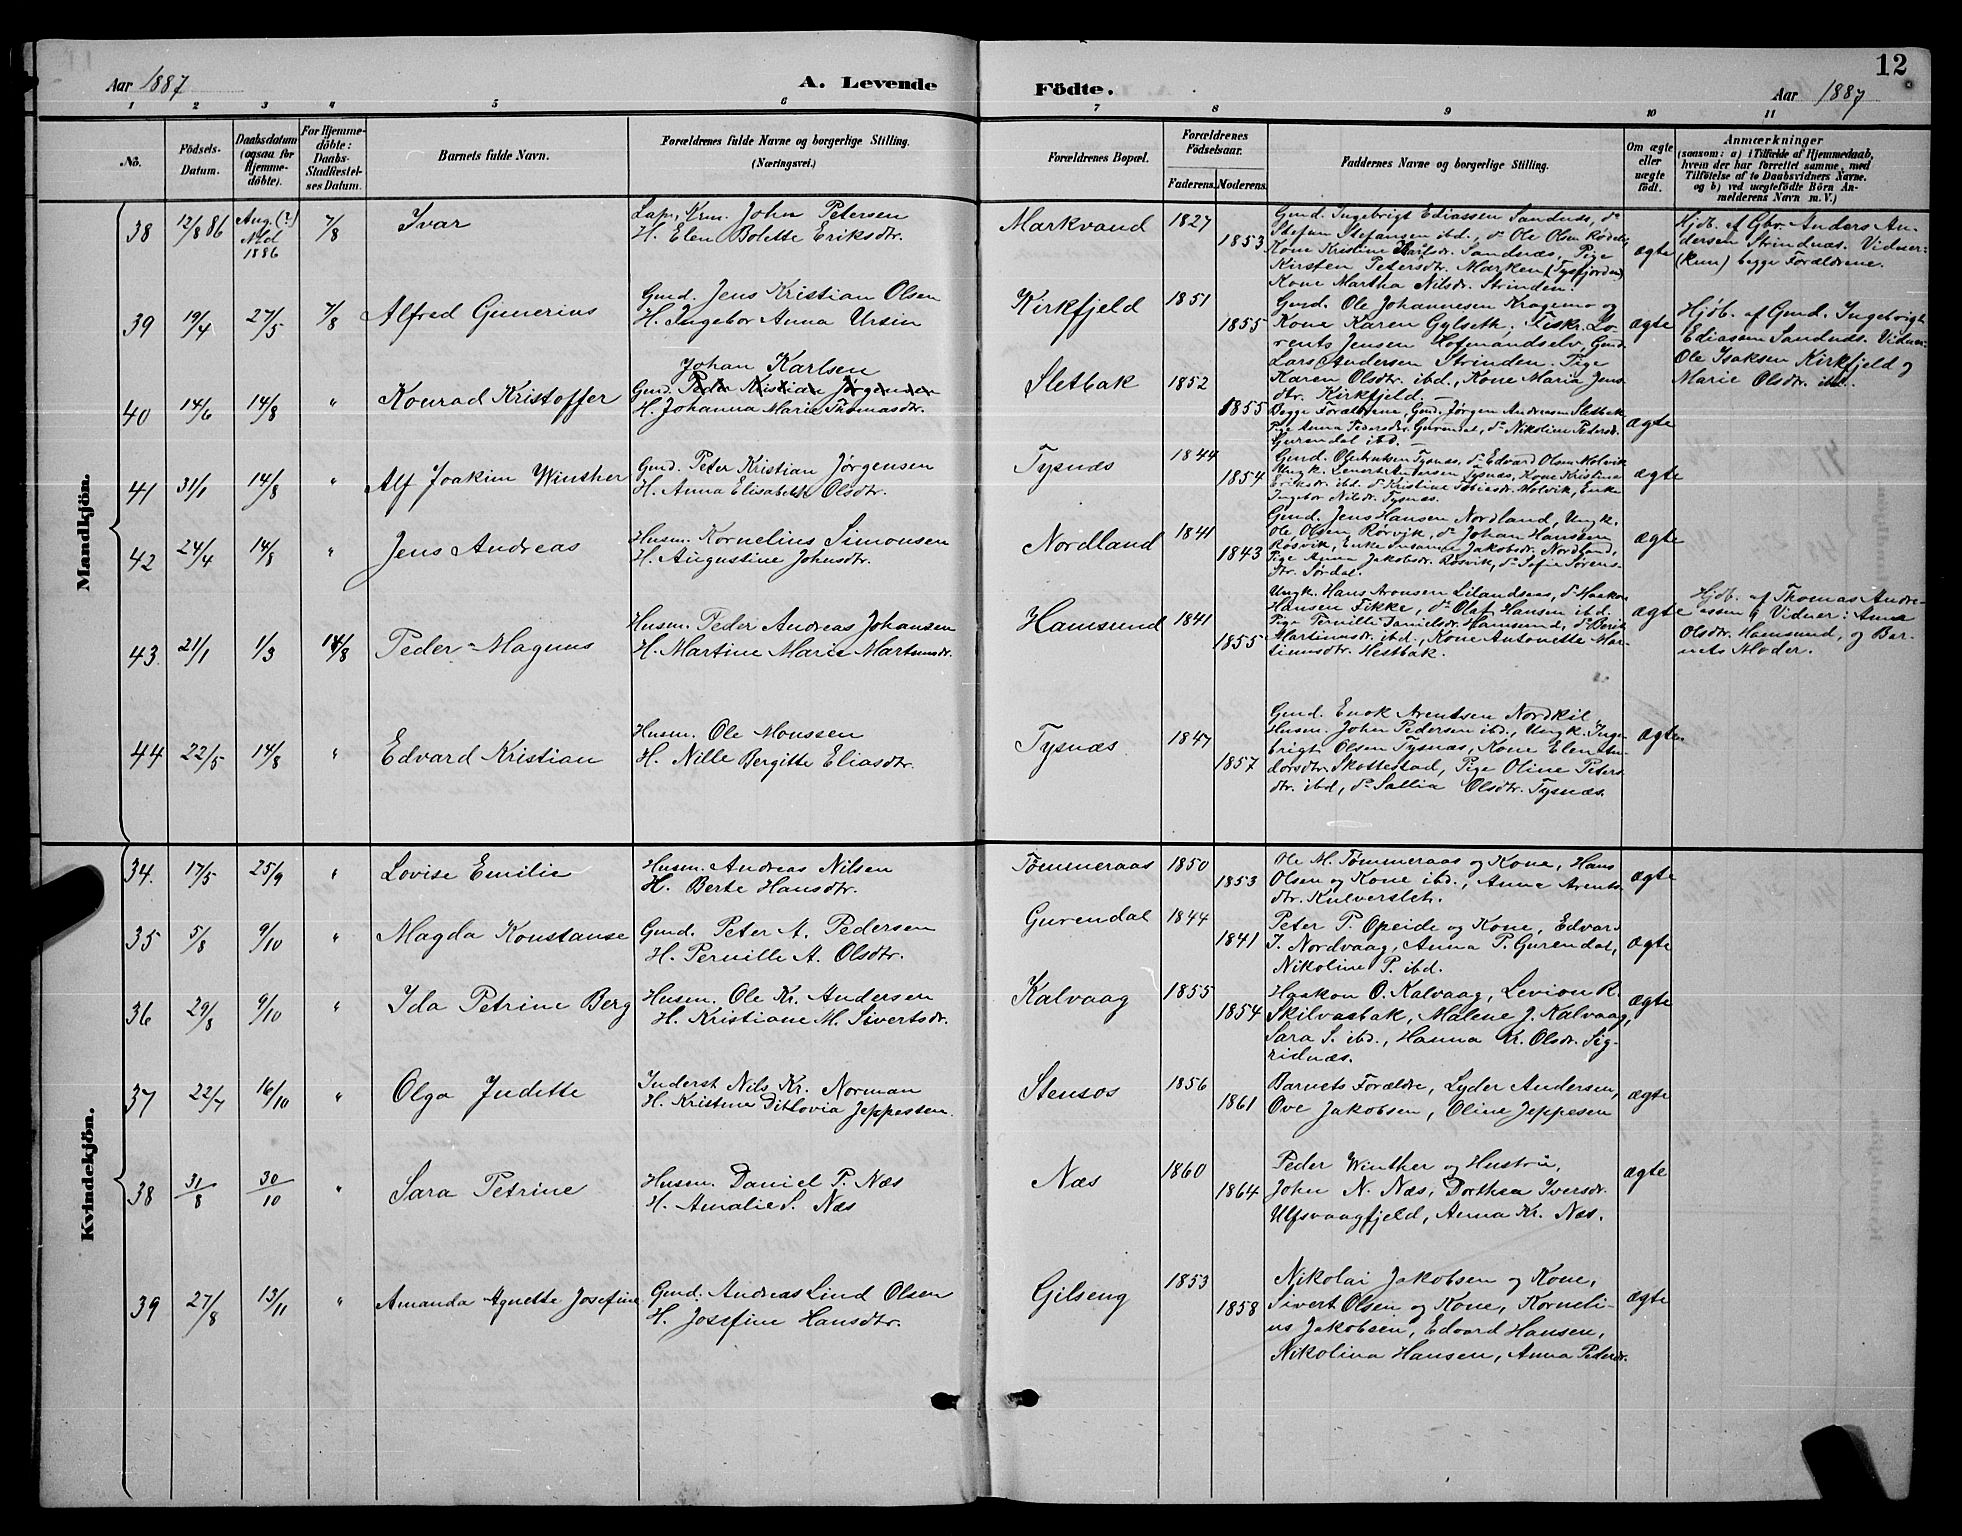 Aar 1887
A. Levende
Födte.
Aar 1887
12
1 2 3 4 5 6 7 8 9 10 11
No.
Födsels-
Datum.
Daabsdatum
(ogsaa for
Hjemme-
döbte).
For Hjemme-
döbte:
Daabs-
Stadfæstel-
ses Datum.
Barnets fulde Navn.
Forældrenes fulde Navne og borgerlige Stilling.
(Næringsvei.)
Forældrenes Bopæl.
Forældrenes
Födselsaar.
Faderens. Moderens.
Faddernes Navne og borgerlige Stilling.
Om ægte
eller
uægte
födt.
Anmærkninger
(saasom: a) i Tilfælde af Hjemmedaab,
hvem der har forrettet samme, med
Tilföielse af to Daabsvidners Navne.
og b) ved uægtefödte Börn An-
melderens Navn m. V.)
Mandkjön.
38 12/8 86 Aug. (?) 7/8 Ivar
Nld
1886
Lap, Krm. John Petersen
H. Elen Bolette Eriksdtr.
Markvand 1827 1853
Gmd. Ingebrigt Ediassen Sandnæs, do
Stefan Stefansen ibd., do Ole Olsen Rødelv
Kone Kristine Karlsdr. Sandnæs, Pige
Kirsten Petersdtr. Marken (Tysfjorden)
Kone Martha Nilsdr. Strinden.
ægte
Hjdb. af Gbr. Anders An-
dersen Strindnæs. Vidner:
(kun) begge Forældrene.
39 19/4 27/5 7/8 Alfred Gunerius
Gmd. Jens Kristian Olsen
H. Ingebor Anna Ursin
Kirkfjeld 1851 1855
Gmd. Ole Johannesen Kragemo og
Kone Karen Gylseth. Fiskr. Lo-
rents Jensen Hofmandselv, Gmd.
Lars Andersen Strinden. Pige
Karen Olsdtr. ibd., Kone Maria Jens
dtr. Kirkfjeld.
ægte
Hjdb. af Gmd. Ingebrigt
Ediassen Sandnæs. Vidner:
Ole Isaksen Kirkfjeld og
Marie Olsdtr. ibd.
40 14/6 14/8 " Konrad Kristoffer
Johan Karlsen
Gmd. Peder Kristian Jørgensen
H. Johanna Marie Thomasdtr.
Sletbak 1852 1855
Begge Forældrene, Gmd. Jørgen Andreasen Sletbak
Pige Anna Pedersdtr. Gurendal, do Nikoline Petersdr.
Gurendal ibd.
ægte
41 31/1 14/8 " Alf Joakim Winther
Gmd. Peter Kristian Jørgensen
H. Anna Elisabeth Olsdtr.
Tysnæs 1844 1854
Tysnæs, do Edvard Olsen Molvik
Tysnæs, Kone Kristine
Eriksdr. ibd. do Kristine Molvik, Enke
Ingebor Nilsdr. Tysnæs.
ægte
42 24/4 14/8 " Jens Andreas
Husm. Kornelius Simonsen
H. Augustine Johnsdtr.
Nordland 1841 1843
Gmd. Jens Hansen Nordland, Ungk.
Ole Olsen Rørvik, do Johan Hansen
Røsvik, Enke Susanne Jakobsdr. Nordland,
Pige Anna Jakobsdr. Røsvik, do Sofie Sørens-
dtr. Sørdal.
ægte
43 21/1 1/3 14/8 Peder Magnus
Husm. Peder Andreas Johansen
H. Martine Marie Martinusdr.
Hamsund 1841 1855
Ungk. Hans Aronsen Lilandsaas, do Haakon
Hansen Fikke, do Olaf Hansen ibd.
Pige Pernille Danielsdr. Hamsund, do Berit
Martinusdr. ibd., Kone Antonette Mar-
tinusdtr. Hestbak.
ægte
Hjdb. af Thomas Andre-
assen. Vidner: Anna
Olsdtr. Hamsund, og Bar-
nets Moder.
44 22/5 14/8 " Edvard Kristian
Husm. Ole Monssen
H. Nille Bergitte Eliasdtr.
Tysnæs 1847 1857
Gmd. Enok Arentsen Nordkil,
Husm. John Pedersen ibd., Ungk. Inge-
brigt Olsen Tysnæs, Kone Elen An-
dersdtr. Skottestad, Pige Oline Peters
dtr. ibd, do Sallia Olsdtr. Tysnæs.
ægte
Kvindekjön.
34. 17/5 25/9 " Lovise Emilie
Husm. Andreas Nilsen
H. Berte Hansdtr.
Tømmeraas 1850 1853
Ole M. Tømmeraas og Kone, Hans
Olsen og Kone ibd., Anne Arents-
dtr. Kulversleh.
ægte
35 5/8 9/10 " Magda Konstanse
Gmd. Peter A. Pedersen
H. Pernille A. Olsdtr.
Gurendal 1844 1841
Peter P. Opeide og Kone, Edvar
J. Nordvaag, Anna P. Gurendal,
Nikoline P. ibd.
ægte
36 29/8 9/10 " Ida Petrine Berg
Husm. Ole Kr. Andersen
H. Kristiane M. Sivertsdr.
Kalvaag 1855 1854
Haakon O. Kalvaag, Levion R.
Skilvasbak, Malene J. Kalvaag,
Sara S. ibd., Hanna Kr. Olsdr. Sig-
ridnæs.
ægte
37 22/7 16/10 " Olga Judette
Inderst Nils Kr. Norman
H. Kristine Ditlovia Jeppessen.
Stensos 1856 1861
Barnets Forældre, Lyder Andersen,
Ove Jakobsen, Oline Jeppesen
ægte
38 31/8 30/10 " Sara Petrine
Husm. Daniel P. Næs
H. Amalie S. Næs
Næs 1860 1864
Peder Winther og Hustru,
John N. Næs, Dorthea Iversdr.
Ulfsvaagfjeld, Anna Kr. Næs.
ægte
39 27/8 13/11 " Amanda Agnette Josefine
Gmd. Andreas Lind Olsen
H. Josefine Hansdtr.
Gilseng 1853 1858
Nikolai Jakobsen og Kone,
Sivert Olsen og Kone, Korneli-
us Jakobsen, Edvard Hansen,
Nikolina Hansen, Anna Petersdr.
ægte